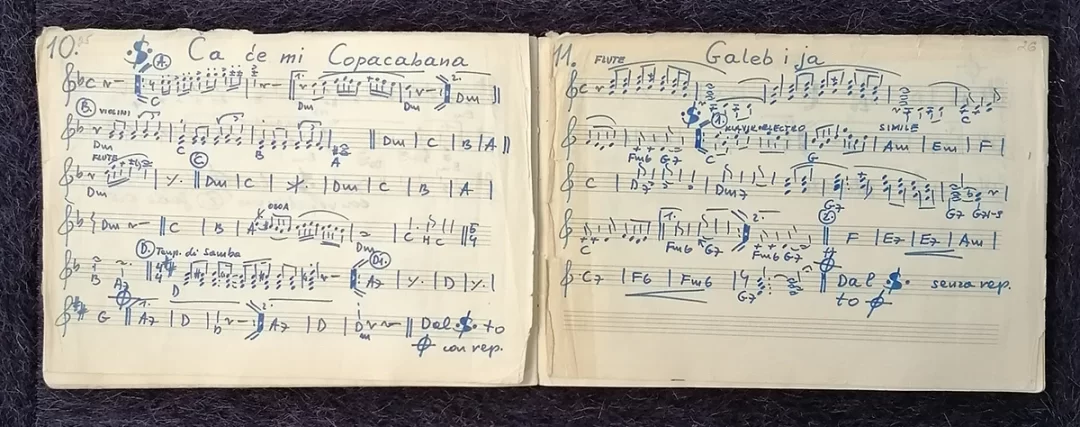 10. Ča će mi Copacabana
A.
C Dm 1. Dm 2. Dm
B. VIOLINI
Dm C B A Dm C B A
FLUTE C.
Dm Dm C Dm C B A
OBOA
Dm C B A Dm C H C 6/4
D. Tempo di Samba D1.
B A7 D A7 D
1. 2.
G A7 D D A7 D D Dal to
con rep.
11. Galeb i ja 26
FLUTE
C
A. KLAVIR ELECTRO SIMILE
Fm6 G7 C G Am Em F
C D7 Dm7 G7 G7 G7-5
1. 2. 2.
C Fm6 G7 Fm6 G7 F E7 E7 Am
C7 F6 Fm6 G7 Dal senza rep.
to